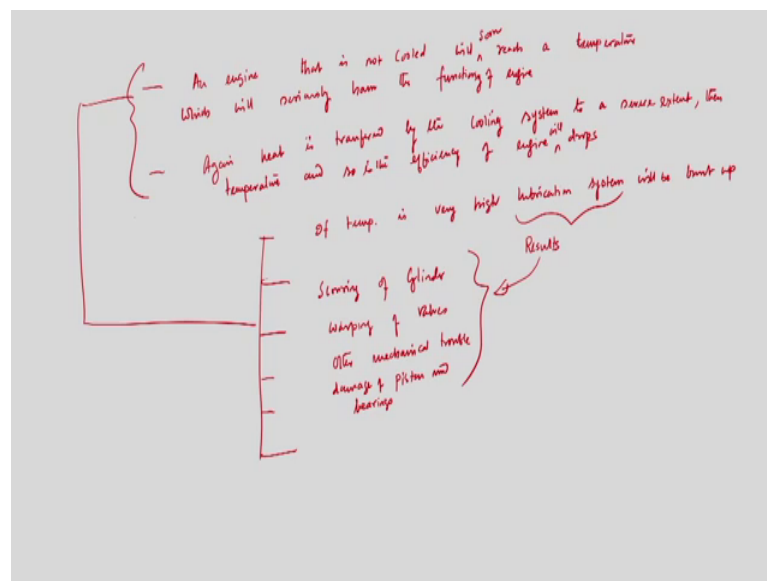 An engine that is not cooled will soon reach a temperature
which will seriously harm the functiong of engine
Again heat is transfered by the cooling system to a severe extent, then
temperature and so is the efficiency of engine will drops
If temp. is very high lubrication system will be burnt up
Results
Scoring of Cylinder
warping of valves
Other mechanical trouble
damage of piston and
bearings